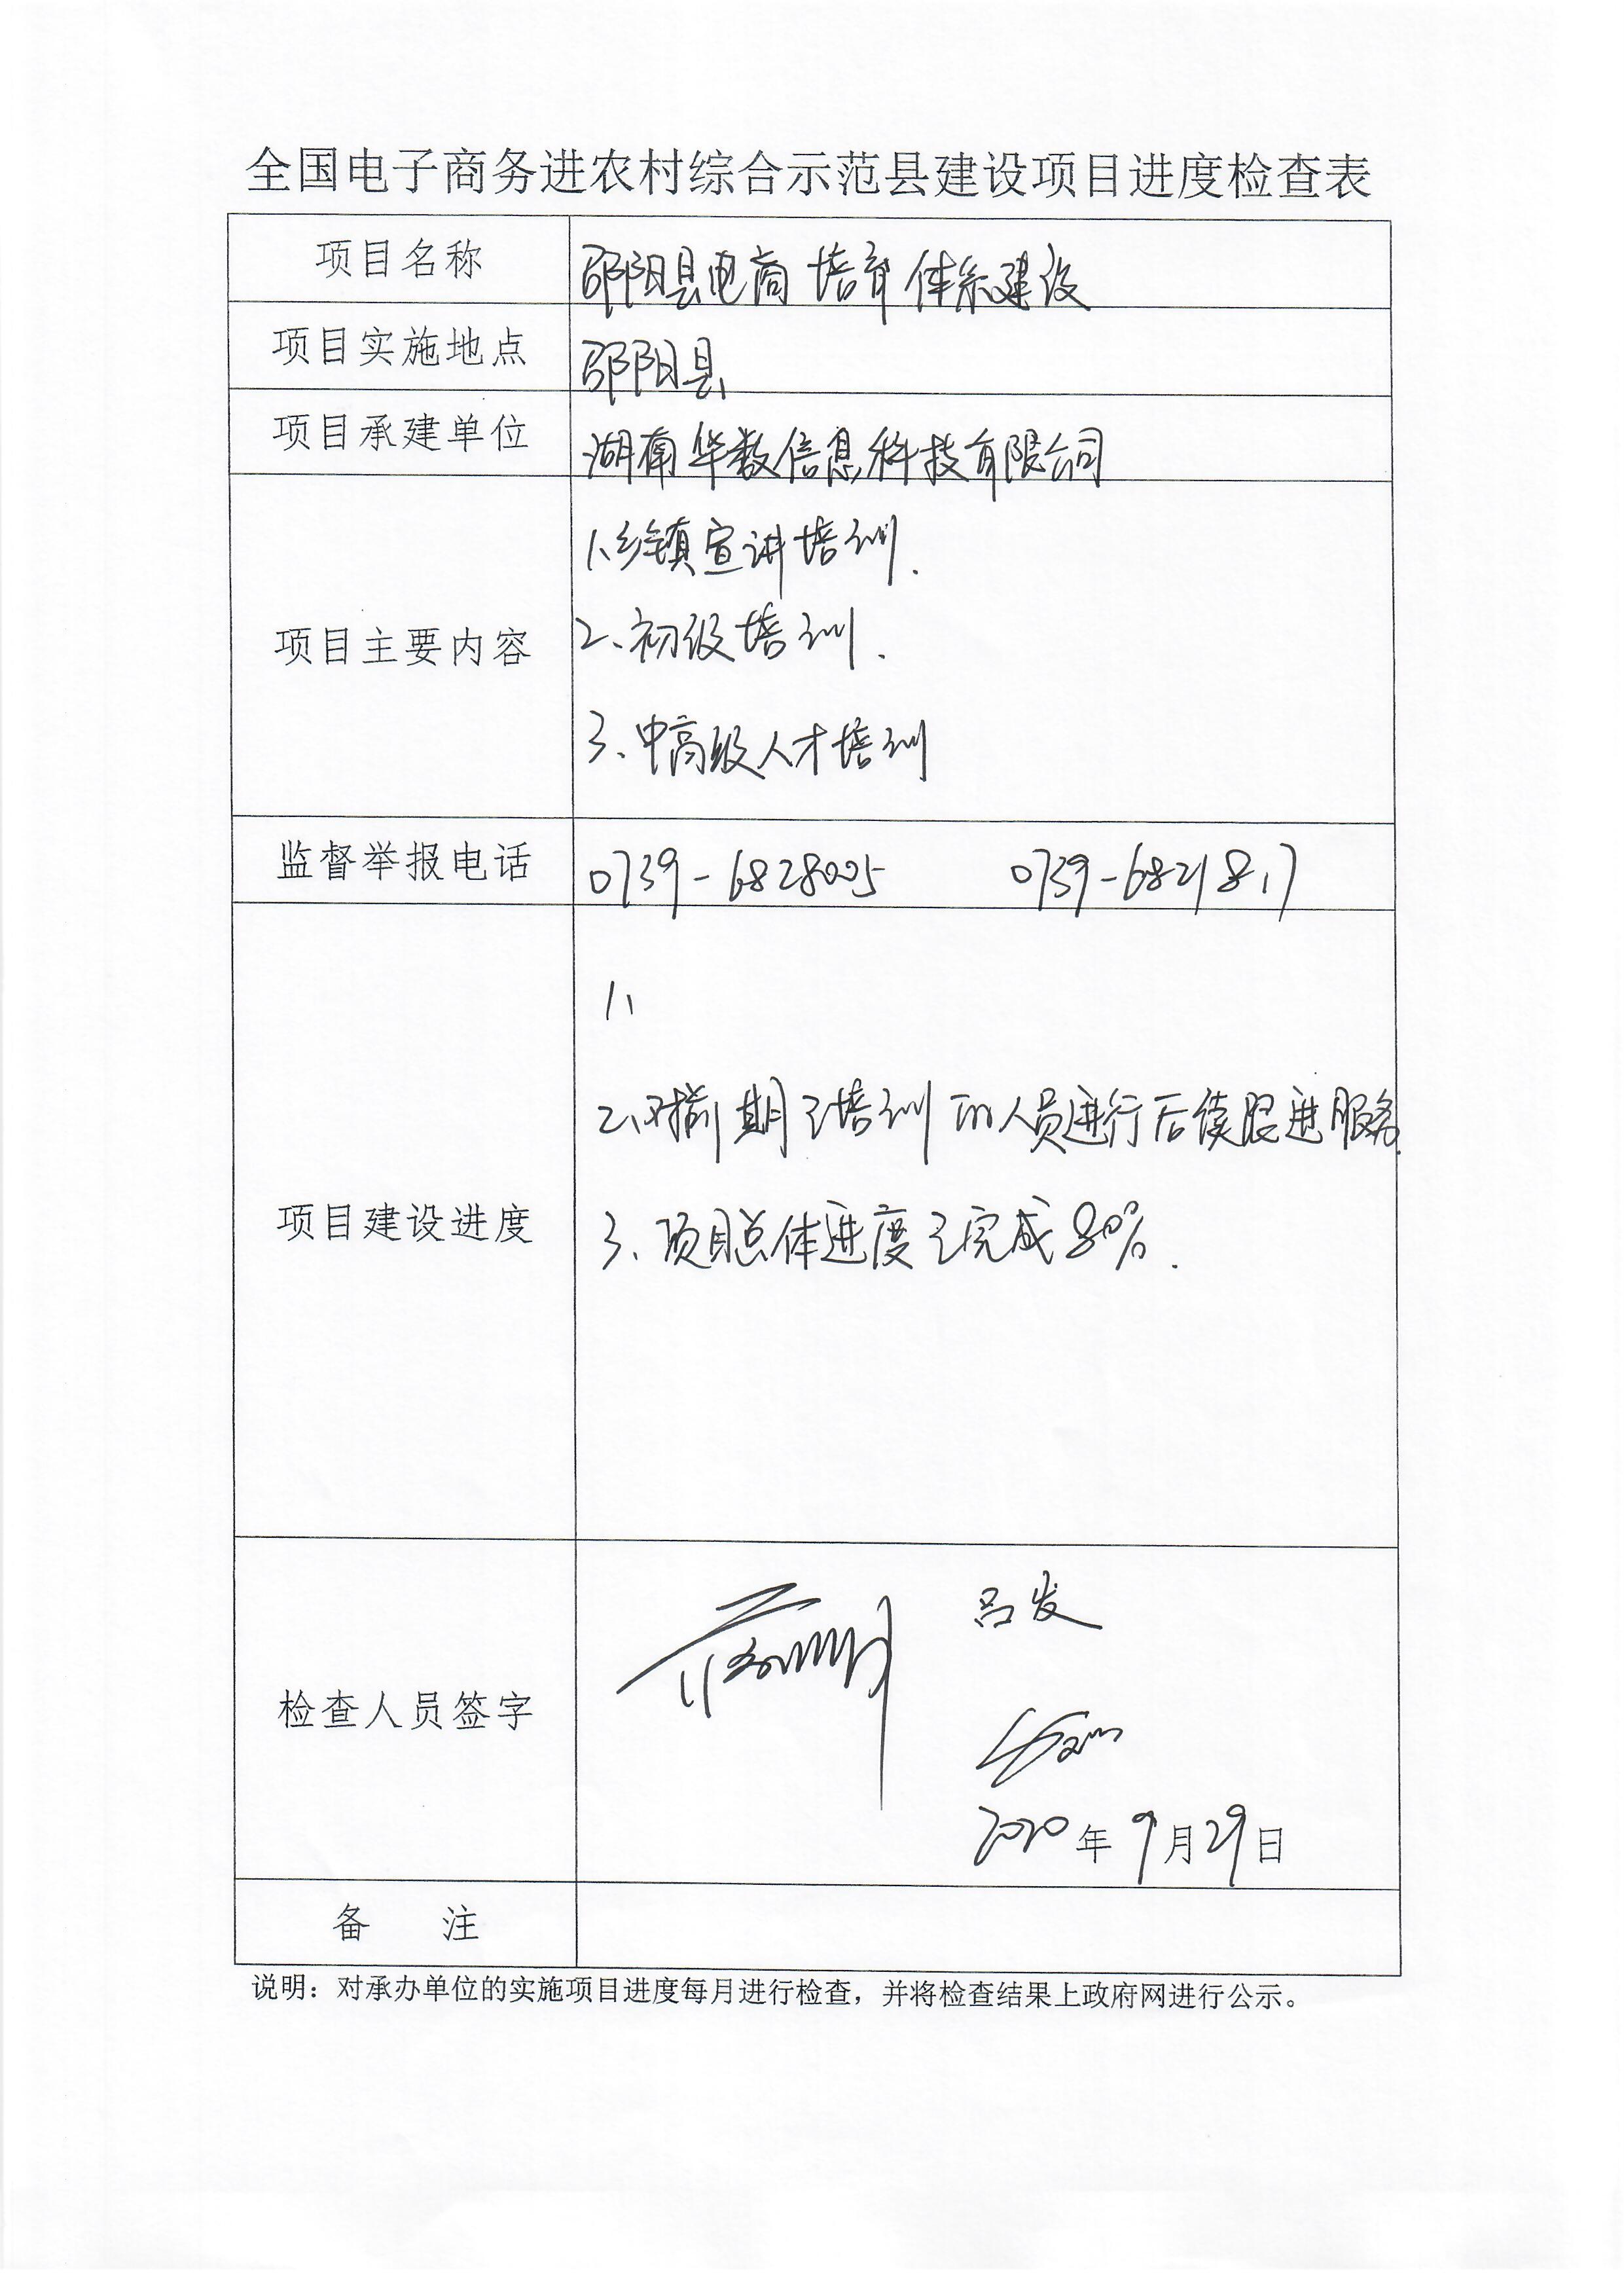 全国电子商务进农村综合示范县建设项目进度检查表
项目名称
邵阳县电商培育体系建设
项目实施地点
邵阳县
项目承建单位
湖南华数信息科技有限公司
项目主要内容
1、乡镇宣讲培训.
2、初级培训.
3、中高级人才培训
监督举报电话
0739-6828005 0739-6821817
项目建设进度
1、
2、对前期已培训的人员进行后续跟进服务.
3、项目总体进度已完成80%.
检查人员签字
吕发
2020年9月29日
备 注
说明：对承办单位的实施项目进度每月进行检查，并将检查结果上政府网进行公示。